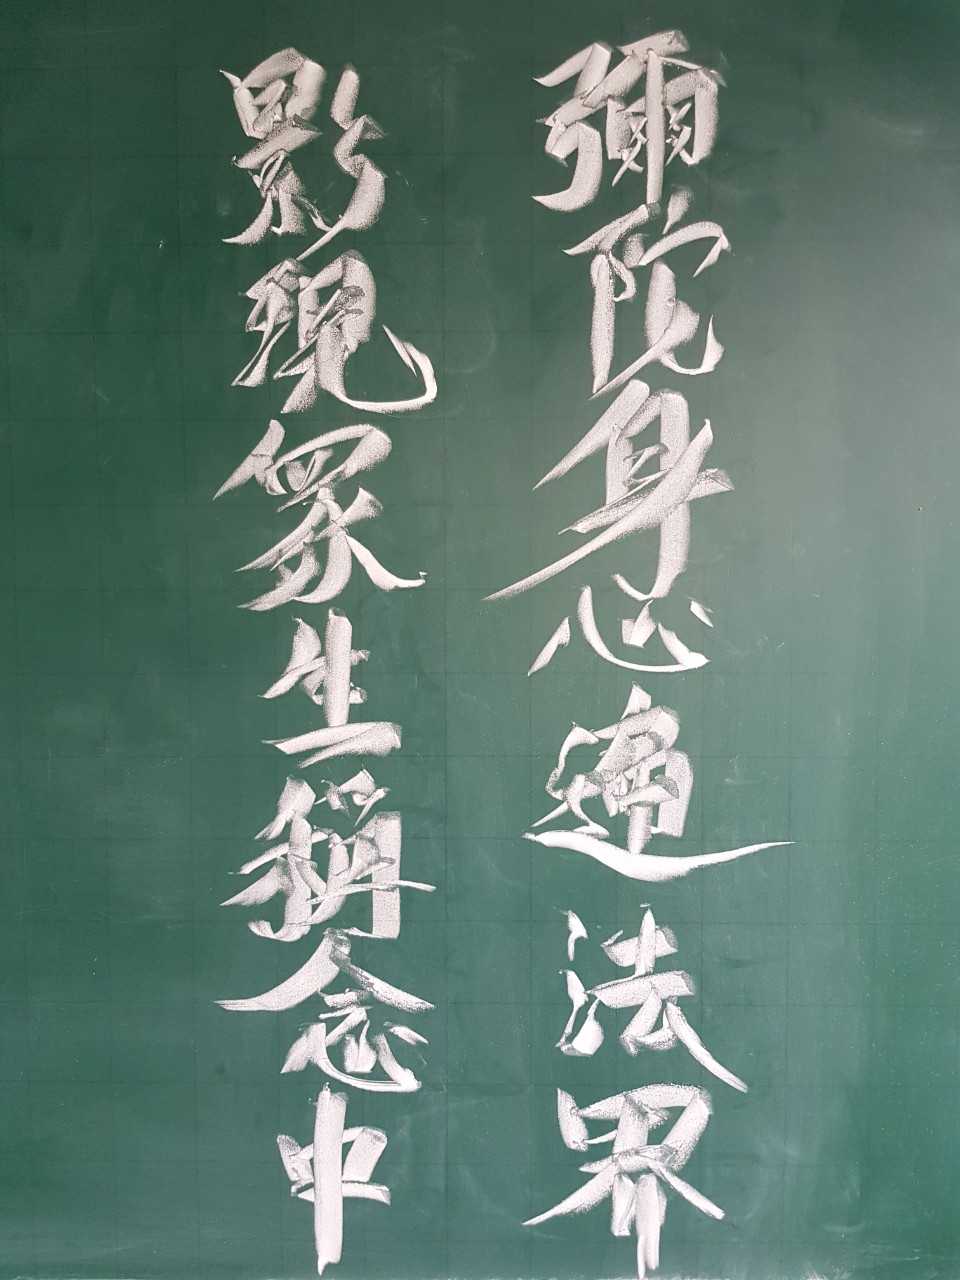 彌陀身心遍法界
影現眾生稱念中